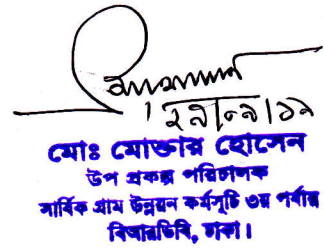 ২৯/০৯/১৯
মোঃ মোক্তার হোসেন
উপ প্রকল্প পরিচালক
সার্বিক গ্রাম উন্নয়ন কর্মসূচি ৩য় পর্যায়
বিআরডিবি, ঢাকা।